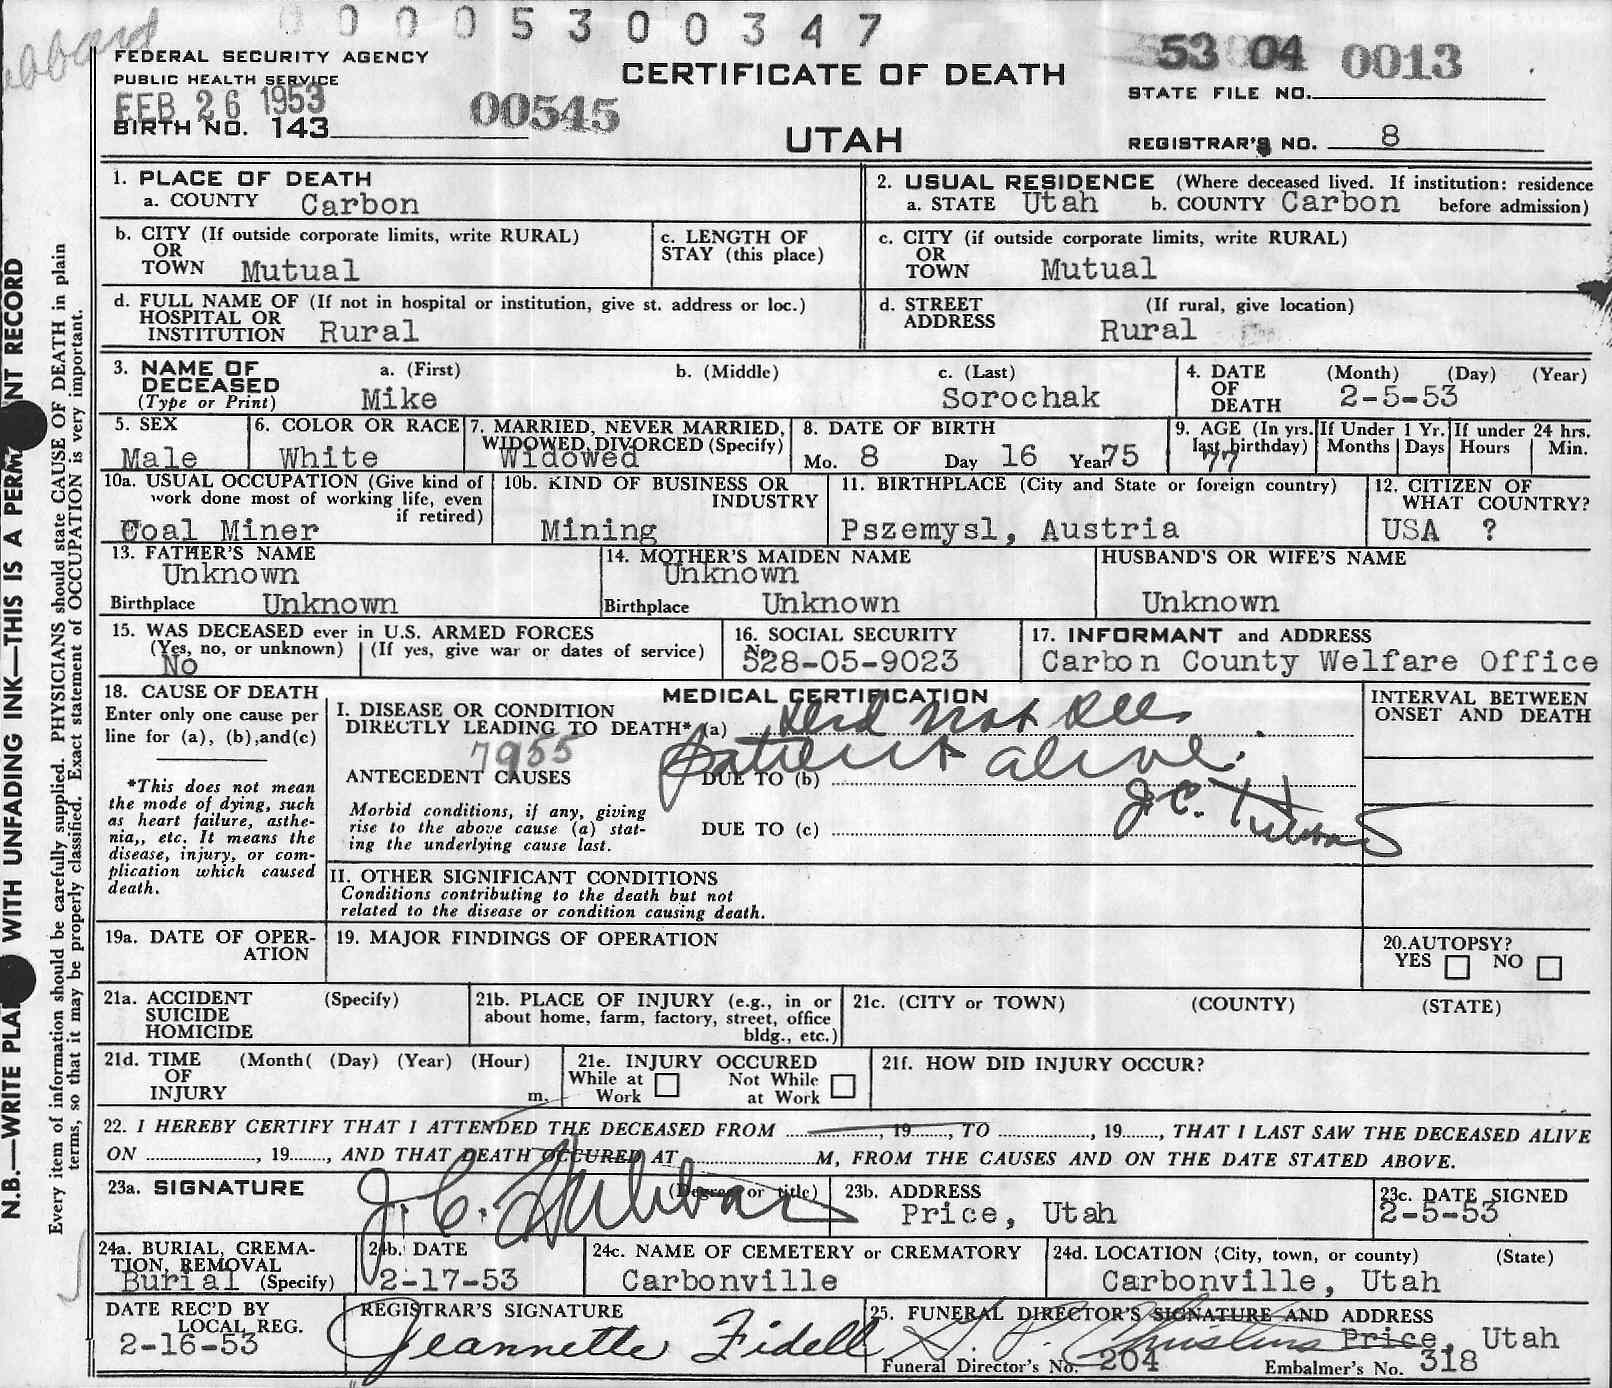 0 0 0 5 3 0 0 3 4 7
FEDERAL SECURITY AGENCY
PUBLIC HEALTH SERVICE
FEB 26 1953
BIRTH NO. 143
00545
CERTIFICATE OF DEATH
UTAH
53 04 0013
STATE FILE NO.
REGISTRAR'S NO. 8
1. PLACE OF DEATH
a. COUNTY Carbon
2. USUAL RESIDENCE (Where deceased lived. If institution: residence before admission)
a. STATE Utah b. COUNTY Carbon
b. CITY (If outside corporate limits, write RURAL)
OR
TOWN Mutual
c. LENGTH OF
STAY (this place)
c. CITY (if outside corporate limits, write RURAL)
OR
TOWN Mutual
d. FULL NAME OF (If not in hospital or institution, give st. address or loc.)
HOSPITAL OR
INSTITUTION Rural
d. STREET (If rural, give location)
ADDRESS Rural
3. NAME OF
DECEASED
(Type or Print)
a. (First) b. (Middle) c. (Last)
Mike Sorochak
4. DATE (Month) (Day) (Year)
OF
DEATH 2-5-53
5. SEX
Male
6. COLOR OR RACE
White
7. MARRIED, NEVER MARRIED,
WIDOWED, DIVORCED (Specify)
Widowed
8. DATE OF BIRTH
Mo. 8 Day 16 Year 75
9. AGE (In yrs.
last birthday)
77
If Under 1 Yr.
Months Days
If under 24 hrs.
Hours Min.
10a. USUAL OCCUPATION (Give kind of
work done most of working life, even
if retired)
Coal Miner
10b. KIND OF BUSINESS OR
INDUSTRY
Mining
11. BIRTHPLACE (City and State or foreign country)
Pszemysl, Austria
12. CITIZEN OF
WHAT COUNTRY?
USA ?
13. FATHER'S NAME
Unknown
Birthplace Unknown
14. MOTHER'S MAIDEN NAME
Unknown
Birthplace Unknown
HUSBAND'S OR WIFE'S NAME
Unknown
15. WAS DECEASED ever in U.S. ARMED FORCES
(Yes, no, or unknown) (If yes, give war or dates of service)
No
16. SOCIAL SECURITY
No.
528-05-9023
17. INFORMANT and ADDRESS
Carbon County Welfare Office
18. CAUSE OF DEATH
Enter only one cause per
line for (a), (b),and(c)
*This does not mean
the mode of dying, such
as heart failure, asthe-
nia,, etc. It means the
disease, injury, or com-
plication which caused
death.
MEDICAL CERTIFICATION
I. DISEASE OR CONDITION
DIRECTLY LEADING TO DEATH* (a) Did not see
7955
patient alive.
ANTECEDENT CAUSES
DUE TO (b)
J.C. Hubbard
Morbid conditions, if any, giving
rise to the above cause (a) stat-
ing the underlying cause last.
DUE TO (c)
INTERVAL BETWEEN
ONSET AND DEATH
II. OTHER SIGNIFICANT CONDITIONS
Conditions contributing to the death but not
related to the disease or condition causing death.
19a. DATE OF OPER-
ATION
19. MAJOR FINDINGS OF OPERATION
20.AUTOPSY?
YES NO
21a. ACCIDENT (Specify)
SUICIDE
HOMICIDE
21b. PLACE OF INJURY (e.g., in or
about home, farm, factory, street, office
bldg., etc.)
21c. (CITY or TOWN) (COUNTY) (STATE)
21d. TIME (Month( (Day) (Year) (Hour)
OF
INJURY m.
21e. INJURY OCCURED
While at Work Not While at Work
21f. HOW DID INJURY OCCUR?
22. I HEREBY CERTIFY THAT I ATTENDED THE DECEASED FROM ........, 19......, TO ........, 19......, THAT I LAST SAW THE DECEASED ALIVE
ON ........, 19......, AND THAT DEATH OCCURED AT ........M, FROM THE CAUSES AND ON THE DATE STATED ABOVE.
23a. SIGNATURE (Degree or title)
J. C. Hubbard
23b. ADDRESS
Price, Utah
23c. DATE SIGNED
2-5-53
24a. BURIAL, CREMA-
TION, REMOVAL
Burial (Specify)
24b. DATE
2-17-53
24c. NAME OF CEMETERY or CREMATORY
Carbonville
24d. LOCATION (City, town, or county) (State)
Carbonville, Utah
DATE REC'D BY
LOCAL REG.
2-16-53
REGISTRAR'S SIGNATURE
Jeannette Fidell
25. FUNERAL DIRECTOR'S SIGNATURE AND ADDRESS
Price, Utah
Funeral Director's No. 204 Embalmer's No. 318
Every item of information should be carefully supplied. PHYSICIANS should state CAUSE OF DEATH in plain
terms, so that it may be properly classified. Exact statement of OCCUPATION is very important.